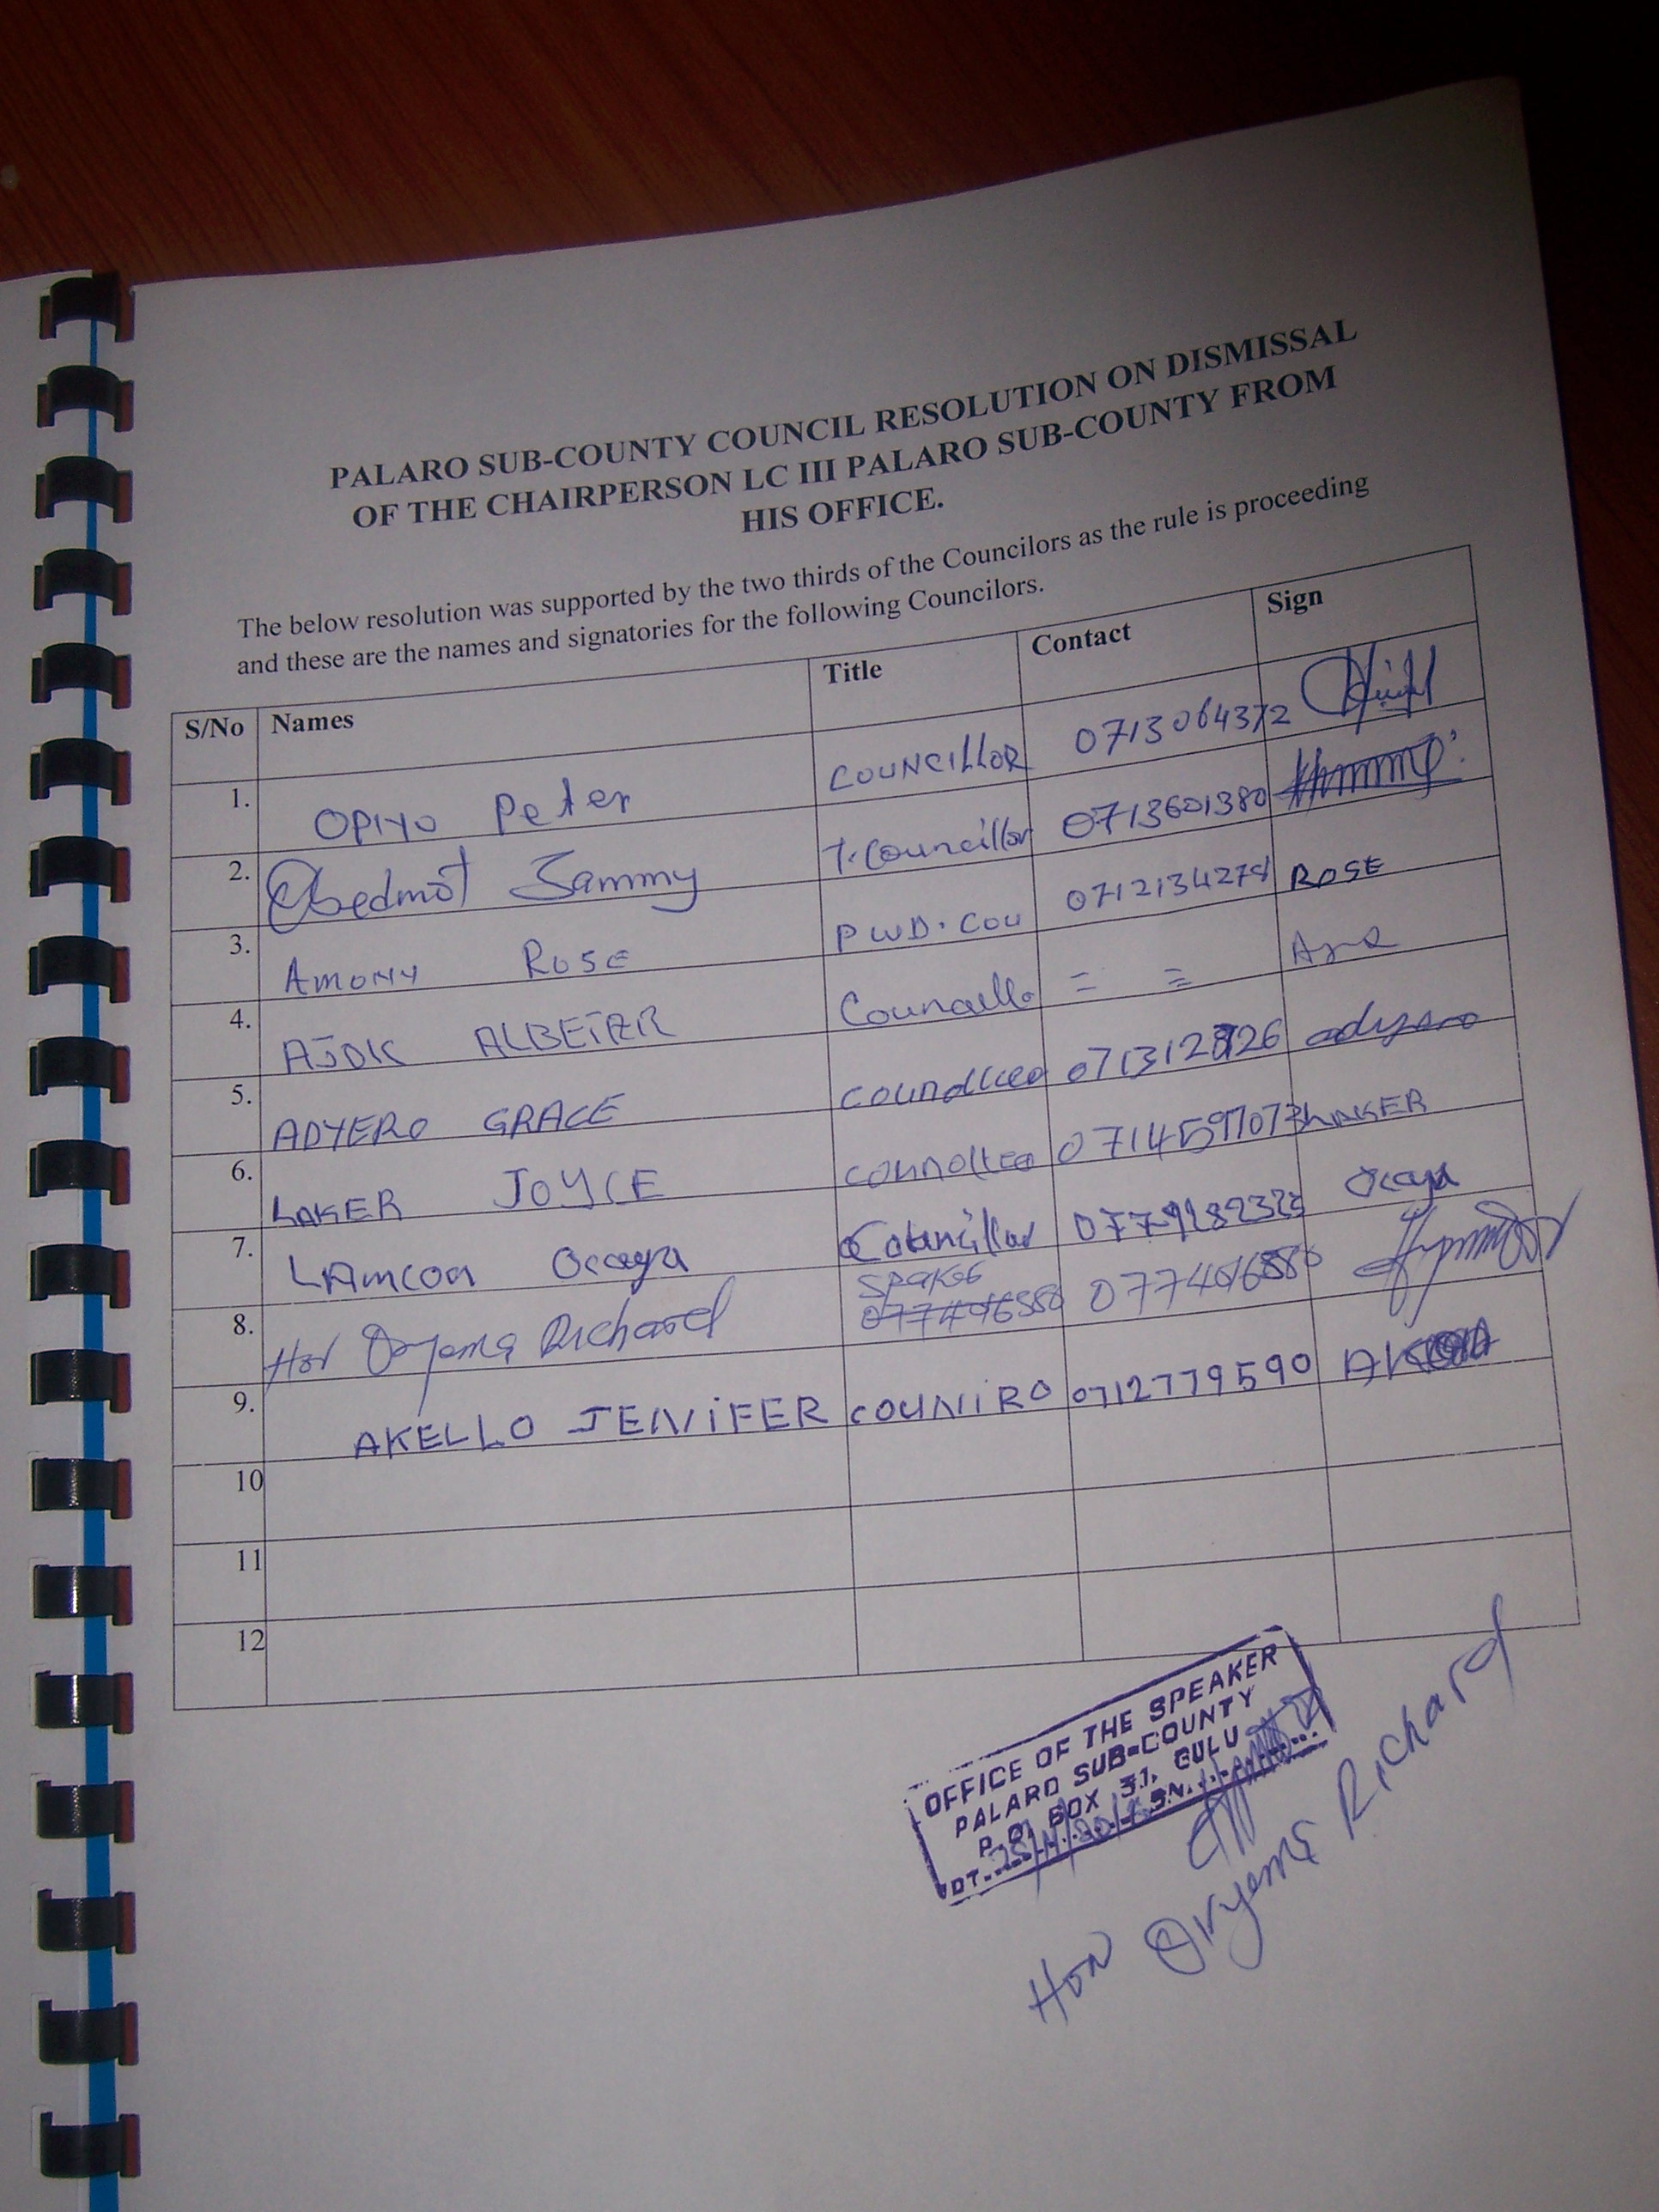 PALARO SUB-COUNTY COUNCIL RESOLUTION ON DISMISSAL
OF THE CHAIRPERSON LC III PALARO SUB-COUNTY FROM
HIS OFFICE.
The below resolution was supported by the two thirds of the Councilors as the rule is proceeding
and these are the names and signatories for the following Councilors.
S/No Names Title Contact Sign
1. OPIYO Peter COUNCILLOR 0713064372
2. Obedmot Sammy T. Councillor 0713601380
3. AMONY ROSE PWD. COU ROSE
4. AJOK ALBEITER Councillo = =
5. ADYERO GRACE adyero
6. LAKER JOYCE LAKER
7. LAMCOA Ocaya Councillor Ocaya
8. Hon Oryema Richard
9. AKELLO JENNIFER COUNIRO 0712779590
10
11
12
OFFICE OF THE SPEAKER
PALARO SUB-COUNTY
P.O. BOX 31, GULU
DT. SN.
Hon Oryema Richard